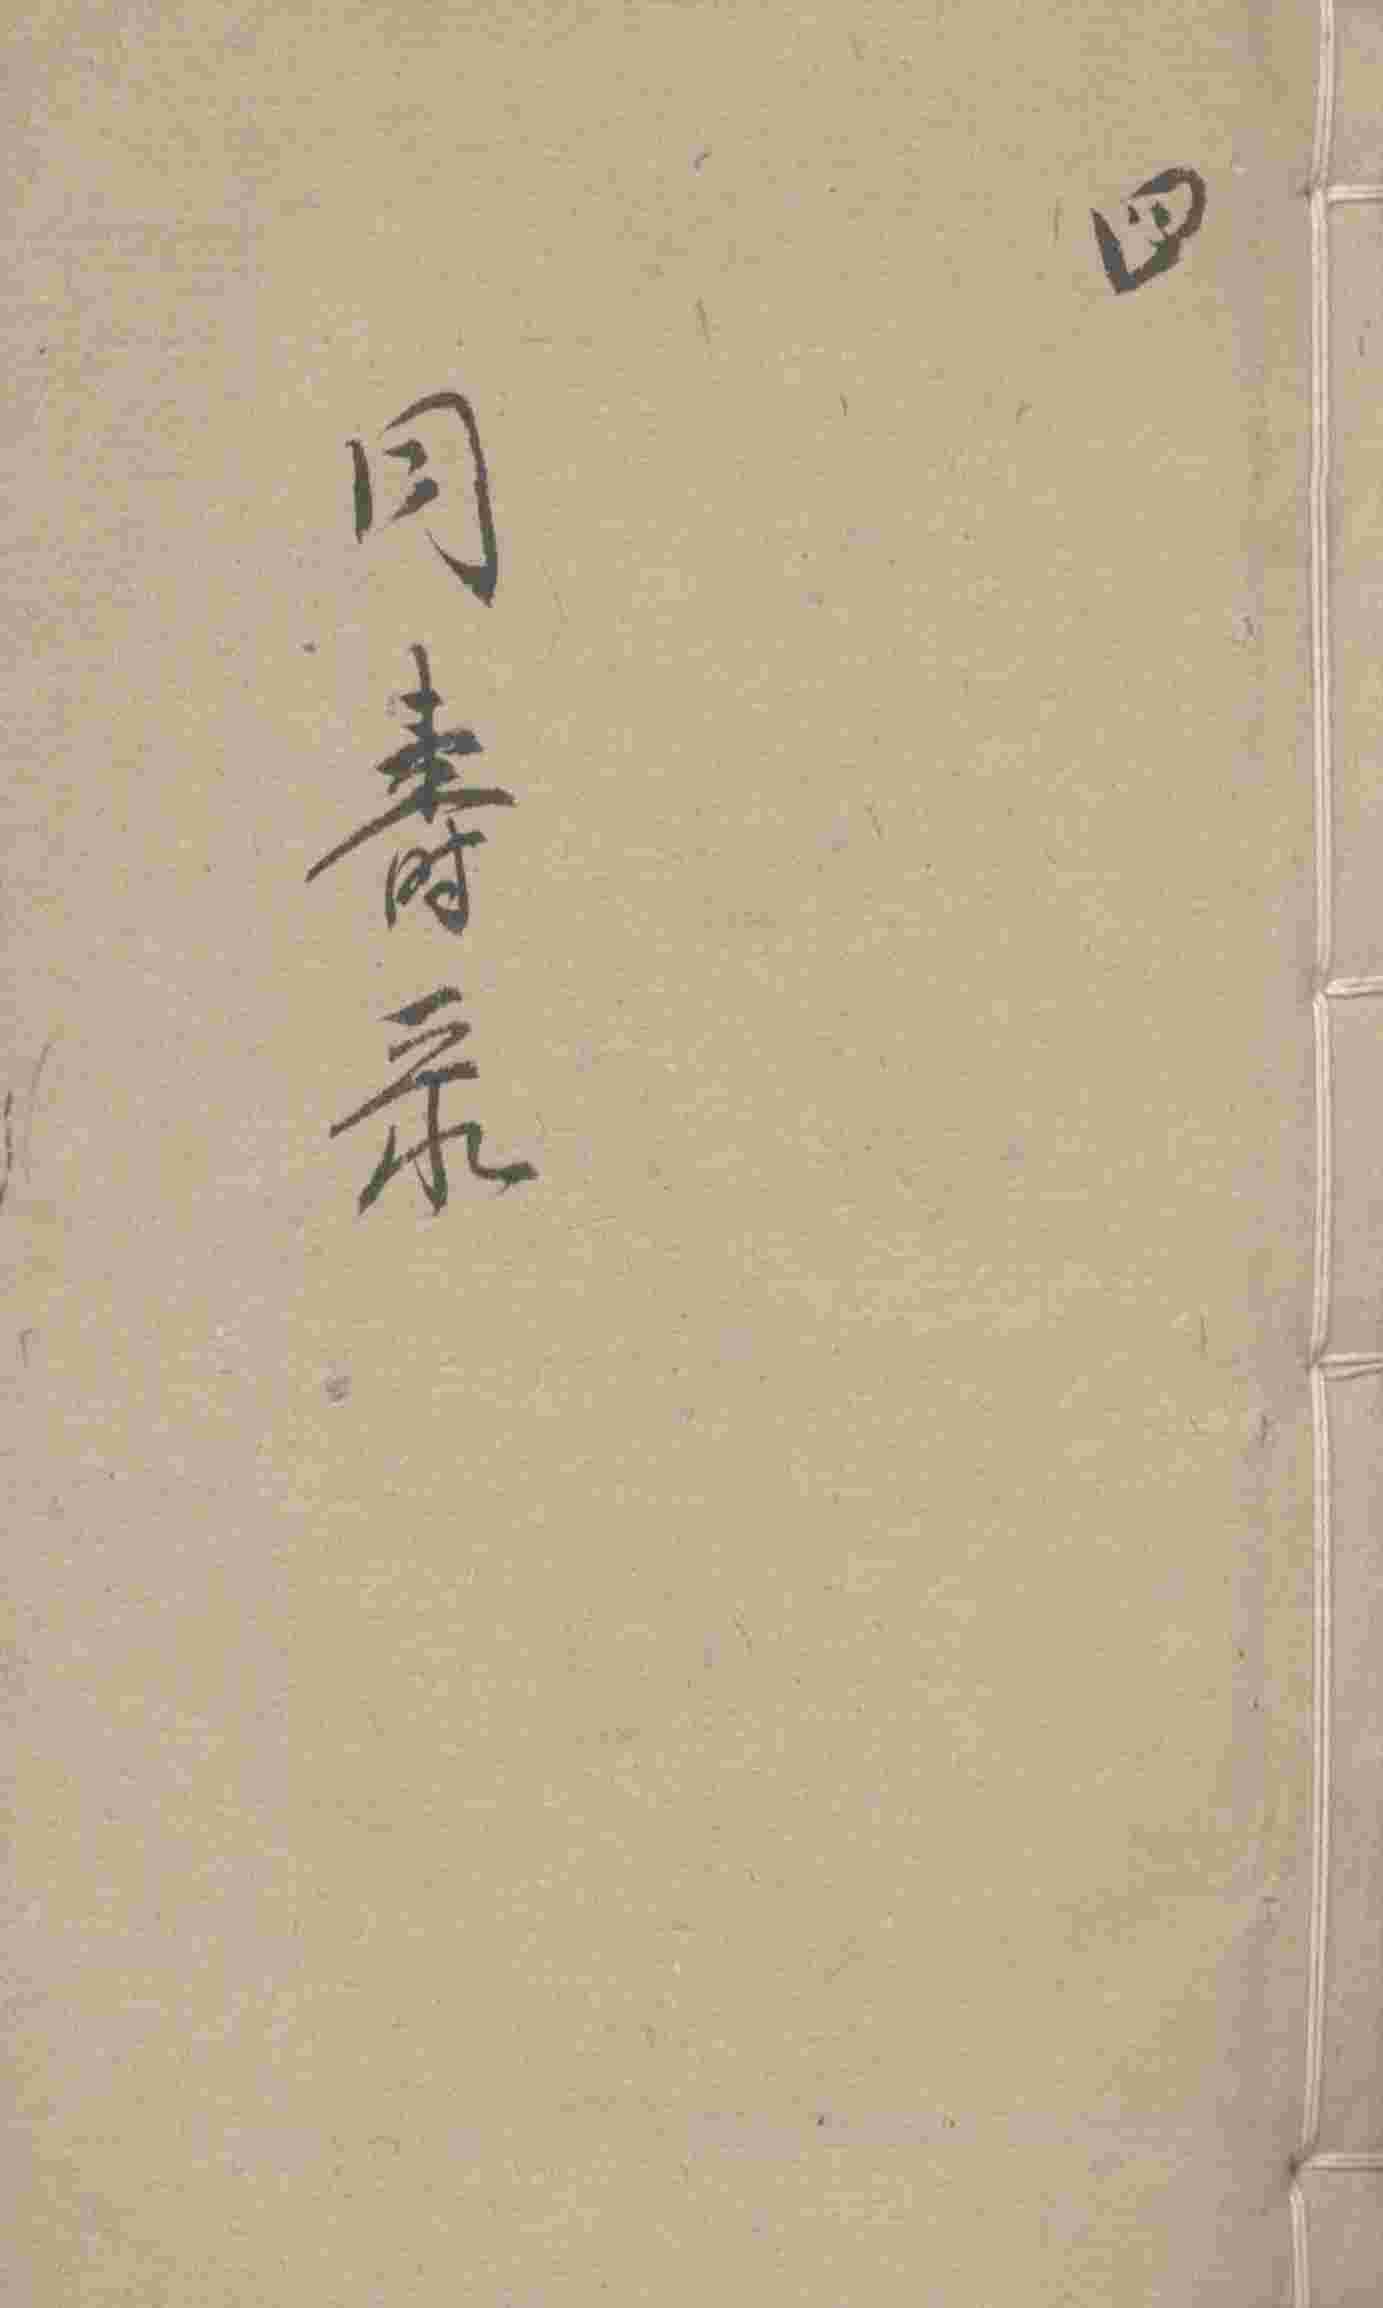 四
同壽录